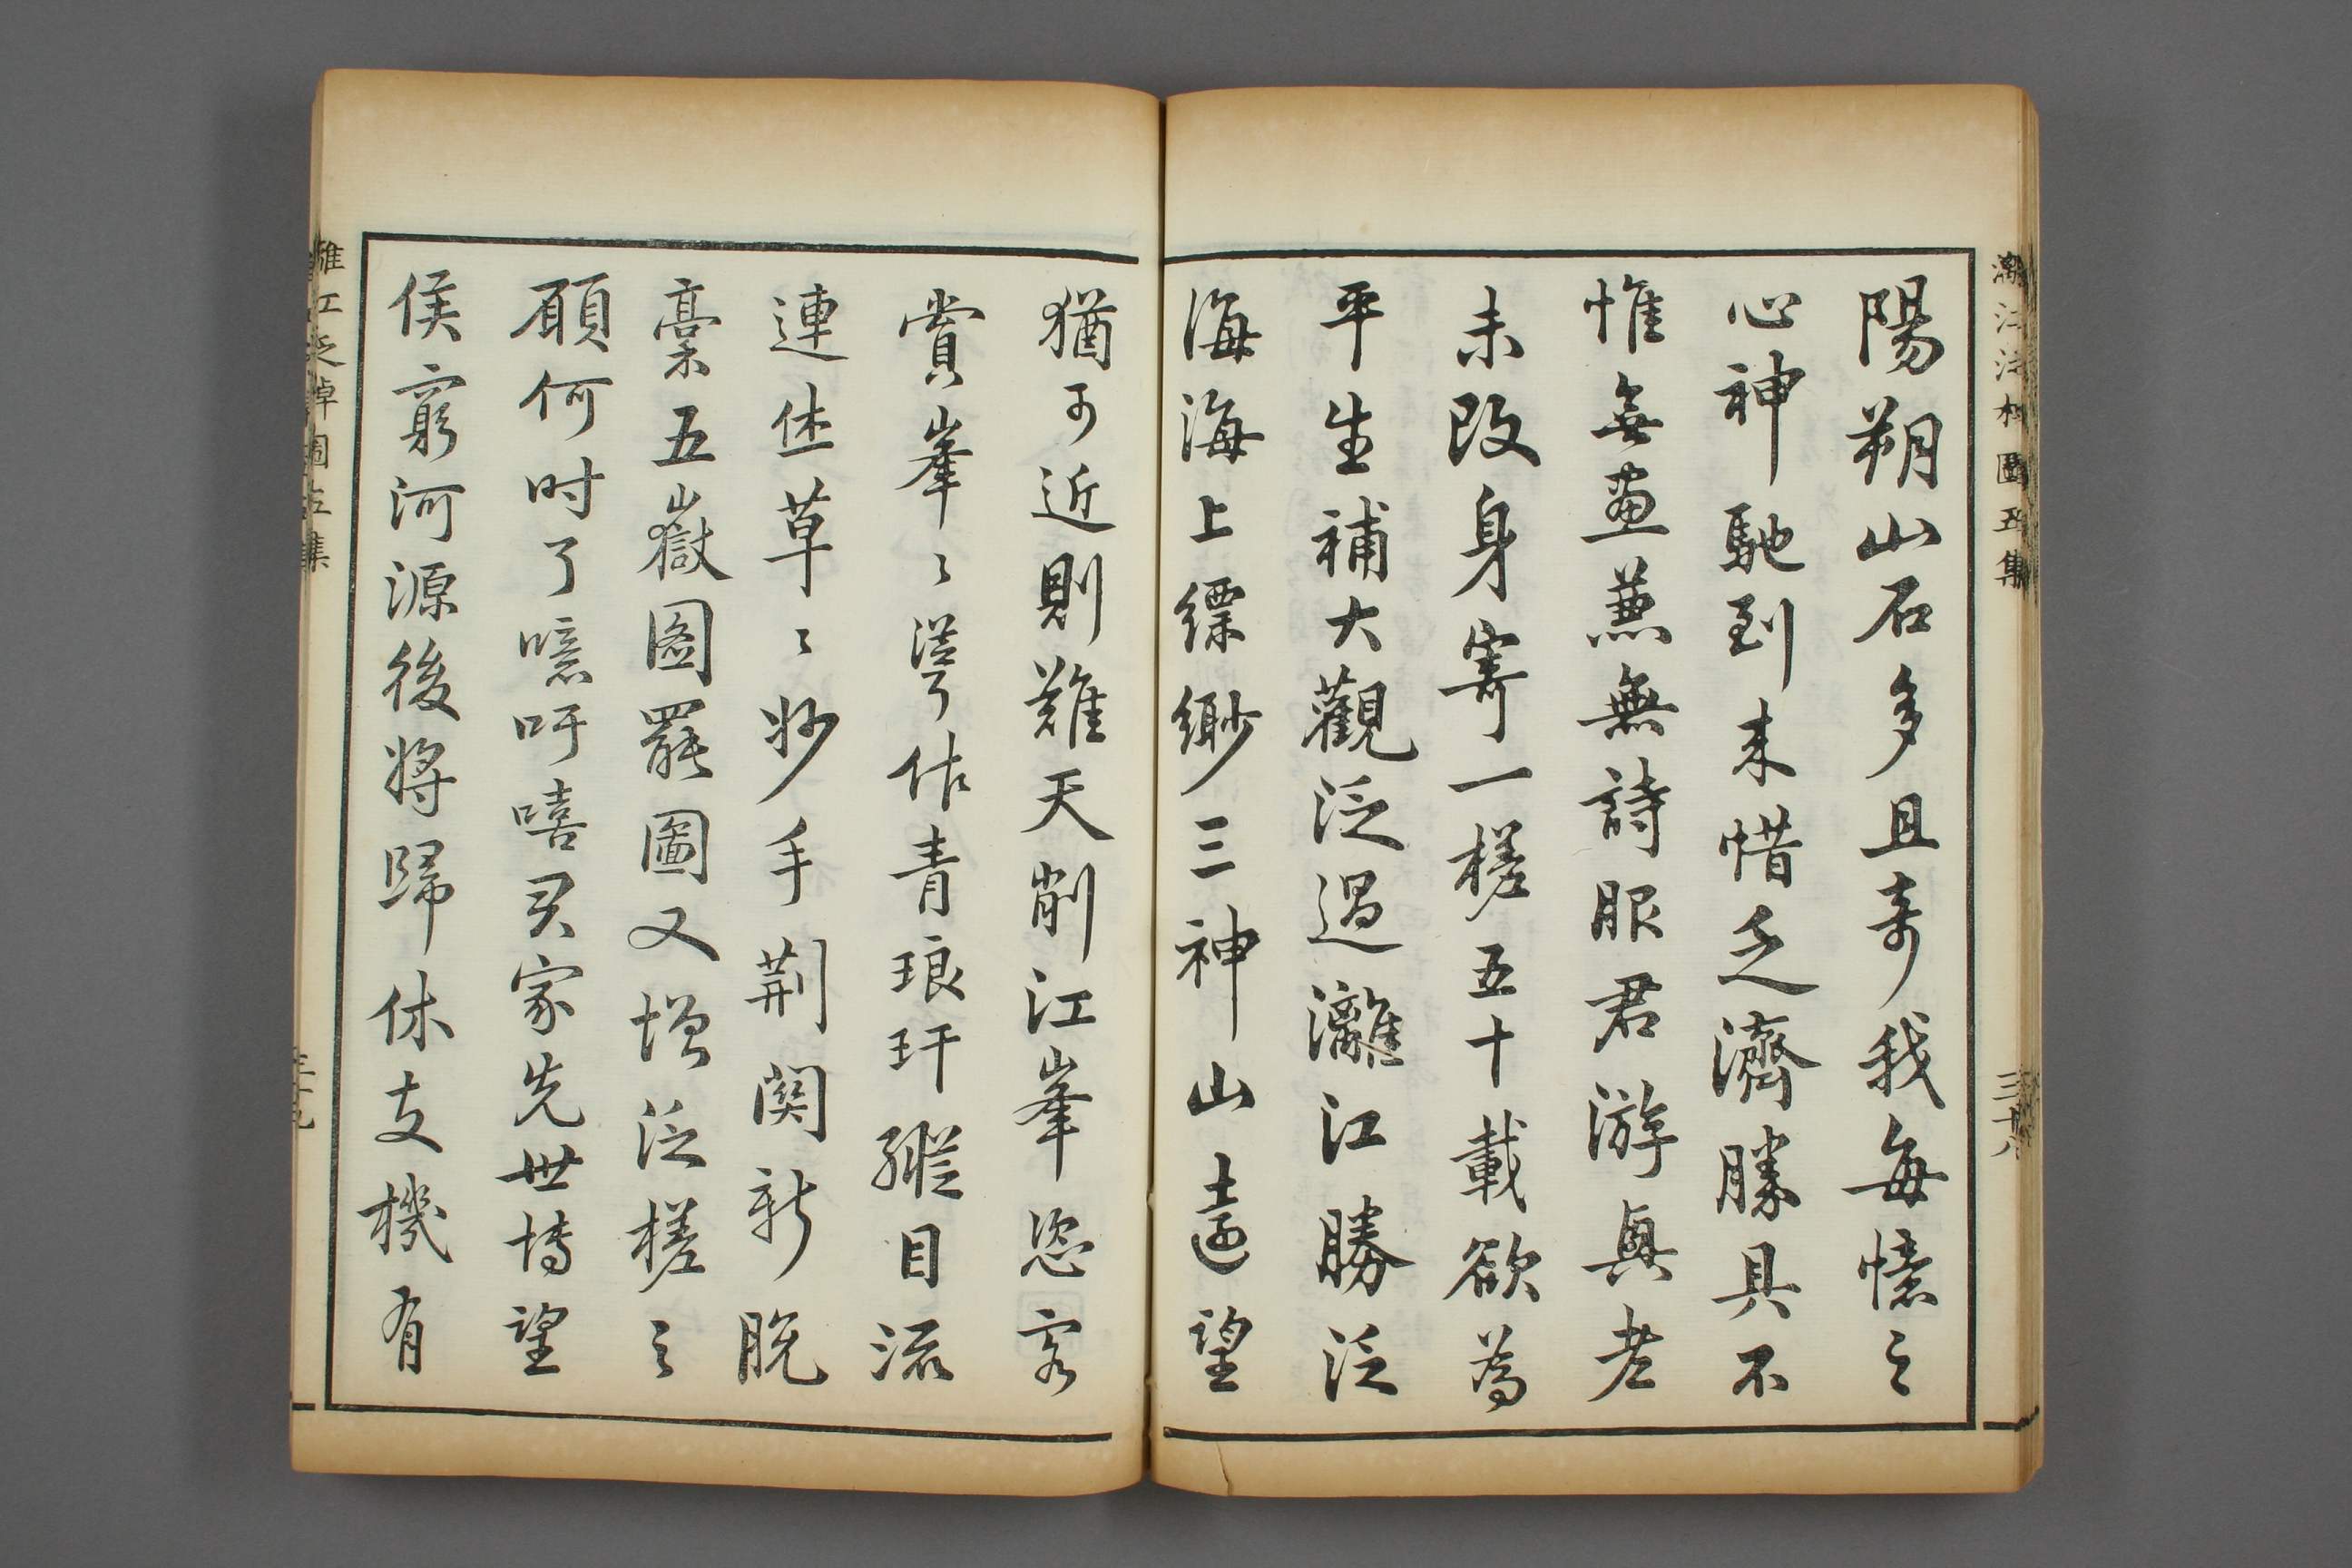 灕江泛棹圖五集
三十八
陽朔山石多且奇我每憶之
心神馳到来惜乏濟勝具不
惟無畫兼無詩眼君游興老
未改身寄一槎五十載欲為
平生補大觀泛過灕江勝泛
海海上縹緲三神山遠望
猶可近則難天削江峯恣客
賞峯〻漾碧作青琅玕縱目流
連生草〻妙手荆関新脫
稾五嶽圖罷圖又增泛槎之
願何時了噫吁嘻君家先世博望
侯窮河源後將歸休支機有
灕江泛棹圖五集
三十九